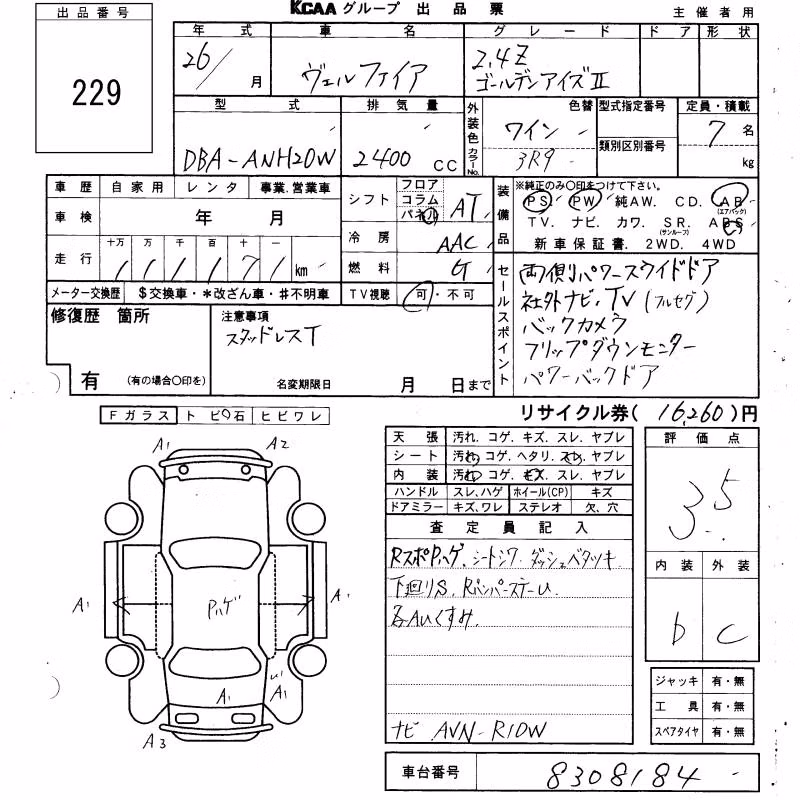 出品番号
229
KCAA グループ 出品票
主催者用
年式 車名 グレード ドア 形状
26/ 月
ヴェルファイア
2.4Z
ゴールデンアイズⅡ
型式 排気量 外装色 色替 型式指定番号 定員・積載
DBA-ANH20W
2400 cc
ワイン
カラーNo. 3R9
類別区別番号
7 名
kg
車歴 自家用 レンタ 事業.営業車
車検 年 月
走行 十万 万 千 百 十 一
1 1 1 1 7 1 km
メーター交換歴 $交換車・*改ざん車・#不明車
シフト フロア コラム パネル AT
冷房 AAC
燃料 G
TV視聴 可・不可
装備品
※純正のみ〇印をつけて下さい。
PS PW 純AW. CD. AB (エアバック)
TV. ナビ. カワ. SR. (サンルーフ) ABS
新車保証書. 2WD. 4WD
セールスポイント
両側パワースライドドア
社外ナビ・TV(フルセグ)
バックカメラ
フリップダウンモニター
パワーバックドア
修復歴 箇所
有 (有の場合〇印を)
注意事項
スタッドレスT
名変期限日 月 日まで
リサイクル券(16,260)円
Fガラス トビ石 ヒビワレ
A1 A2
A1 Pハゲ A1
A1 A1
A3
天張 汚れ. コゲ. キズ. スレ. ヤブレ
シート 汚れ. コゲ. ヘタリ. スレ. ヤブレ
内装 汚れ. コゲ. キズ. スレ. ヤブレ
ハンドル スレ,ハゲ ホイール(CP) キズ
ドアミラー キズ,ワレ ステレオ 欠、穴
査定員記入
RスポPハゲ、シートシワ.ダッシュベタツキ
下廻りS. RバンパーステーU.
各AUくすみ.
ナビ AVN-R10W
評価点
3.5
内装 外装
b c
ジャッキ 有・無
工具 有・無
スペアタイヤ 有・無
車台番号 8308184